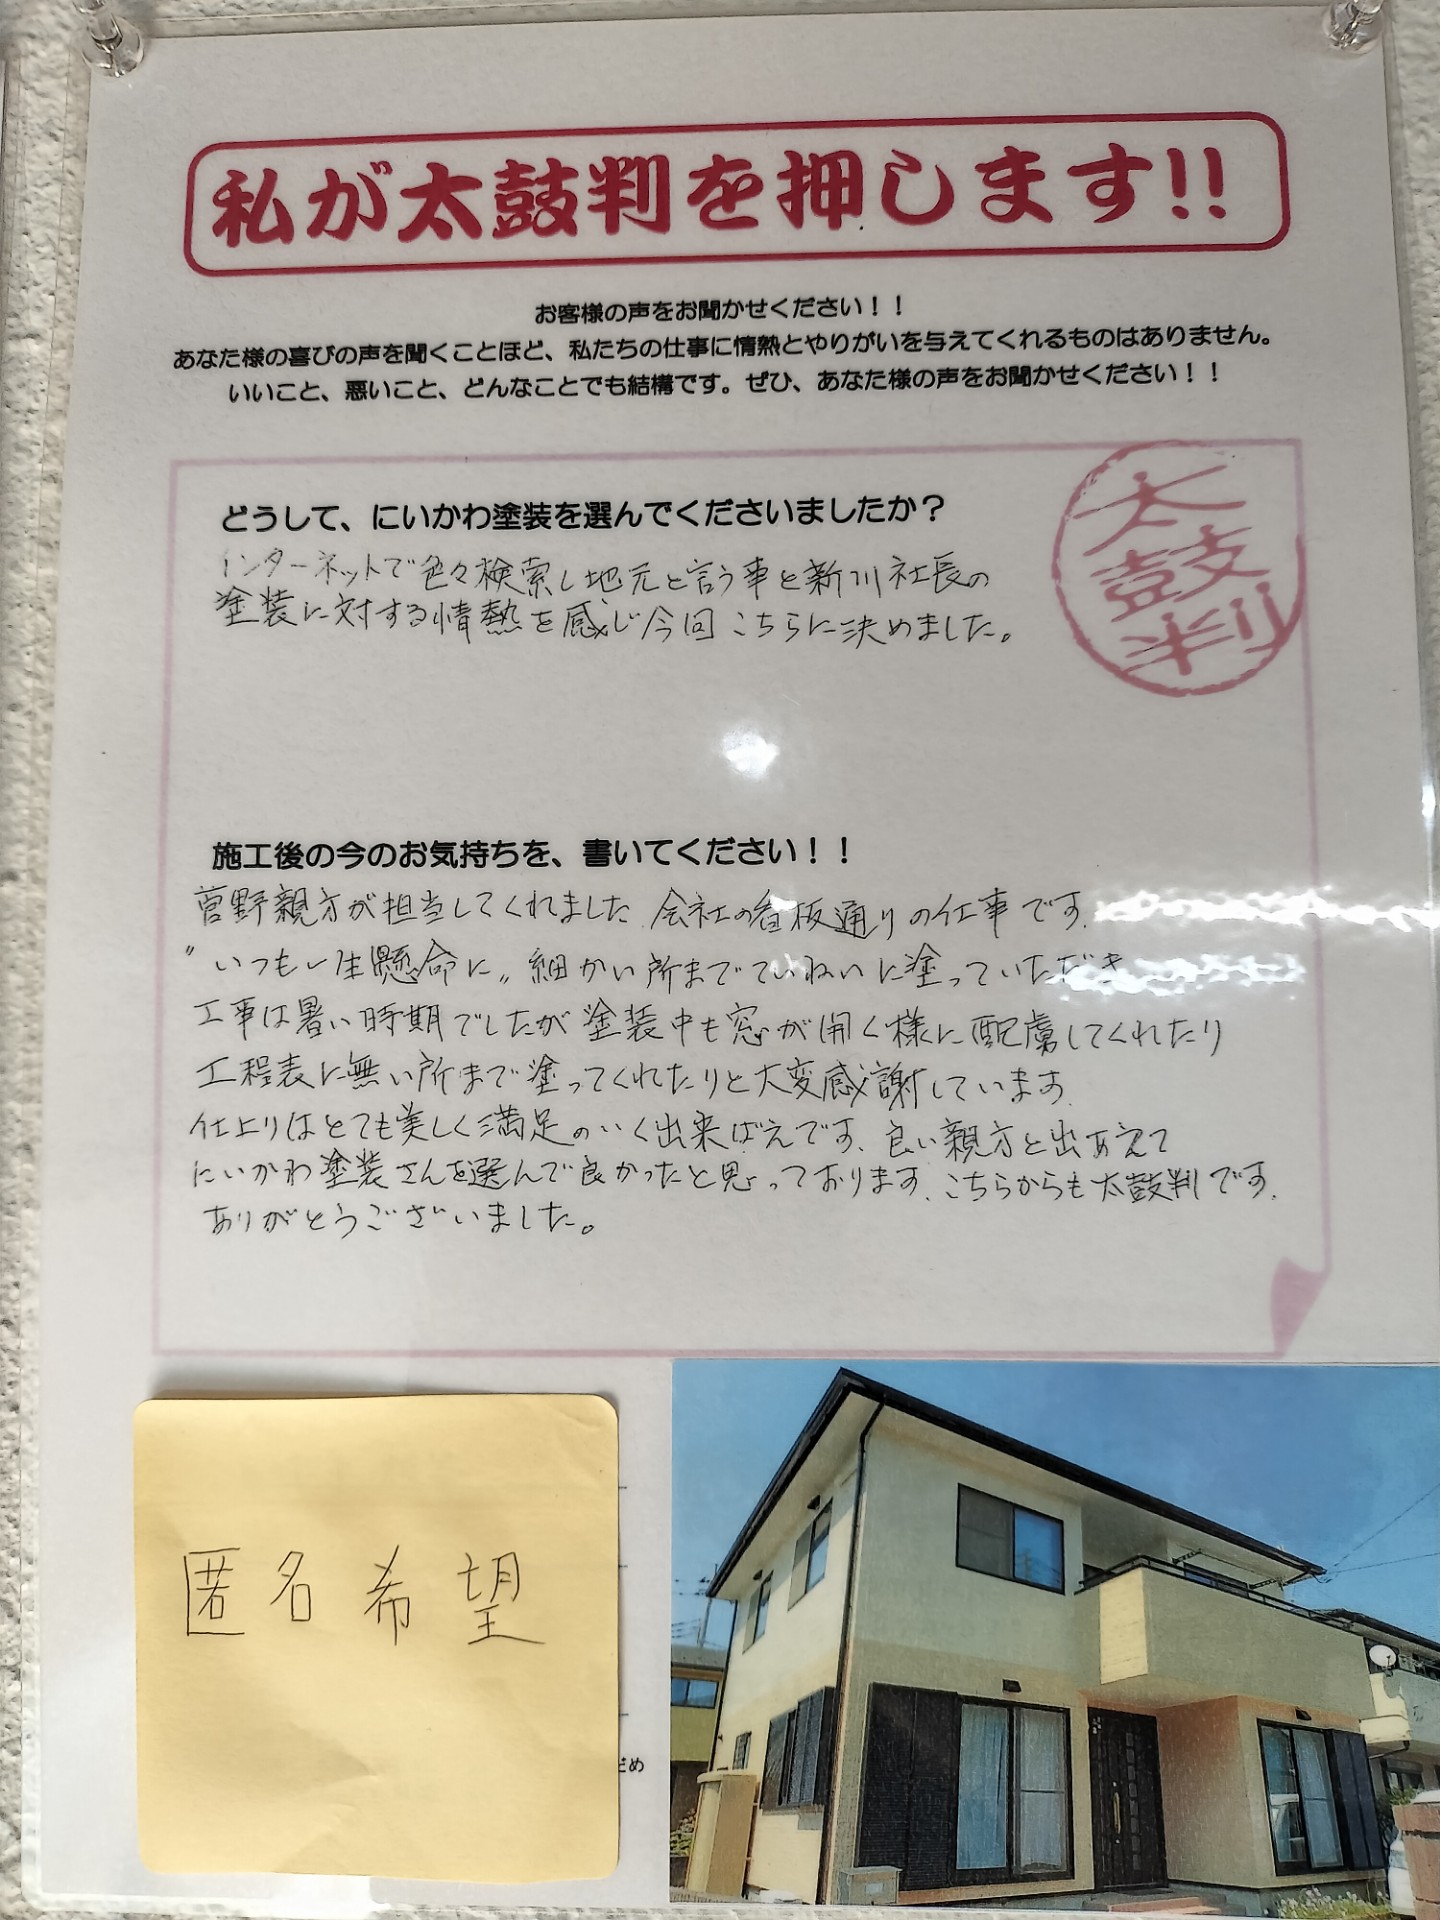 私が太鼓判を押します!!
お客様の声をお聞かせください！！
あなた様の喜びの声を聞くことほど、私たちの仕事に情熱とやりがいを与えてくれるものはありません。
いいこと、悪いこと、どんなことでも結構です。ぜひ、あなた様の声をお聞かせください！！
太鼓判
どうして、にいかわ塗装を選んでくださいましたか？
インターネットで色々検索し地元と言う事と新川社長の
塗装に対する情熱を感じ今回こちらに決めました。
施工後の今のお気持ちを、書いてください！！
菅野親方が担当してくれました.会社の看板通りの仕事です.
"いつも一生懸命に"細かい所までていねいに塗っていただき
工事は暑い時期でしたが塗装中も窓が開く様に配慮してくれたり
工程表に無い所まで塗ってくれたりと大変感謝しています.
仕上りはとても美しく満足のいく出来ばえです.良い親方と出あえて
にいかわ塗装さんを選んで良かったと思っております.こちらからも太鼓判です.
ありがとうございました。
匿名希望
だめ